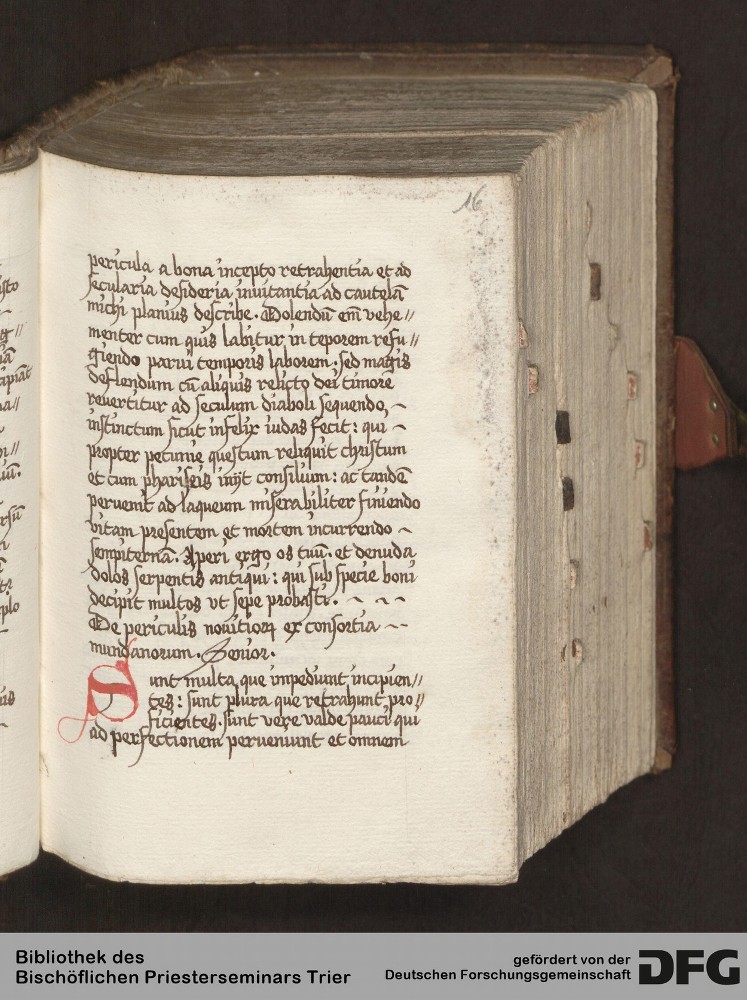 16
pericula a bona incepto retrahentia et ad
secularia desideria inuitantia ad cautelā
michi planius describe. Dolendū em̄ vehe//
menter cum quis labitur in teporem refu//
giendo parui temporis laborem. sed magis
deflendum cū aliquis relicto dei timore
reuertitur ad seculum diaboli sequendo, ~
instinctum sicut infelix iudas fecit: qui ~
propter pecunie questum reliquit christum
et cum phariseis inijt consilium: ac tandē
peruenit ad laqueum miserabiliter finiendo
vitam presentem et mortem incurrendo ~
sempiternā. Aperi ergo os tuū. et denuda
dolos serpentis antiqui: qui sub specie boni
decipit multos vt sepe probasti. ~ ~ ~
De periculis nouitioꝝ ex consortia ~~
mundanorum. Senior.
Sunt multa que impediunt incipien//
tes: sunt plura que retrahunt pro//
ficientes. sunt vere valde pauci qui
ad perfectionem perueniunt et omnem
Bibliothek des
Bischöflichen Priesterseminars Trier
gefördert von der
Deutschen Forschungsgemeinschaft
DFG